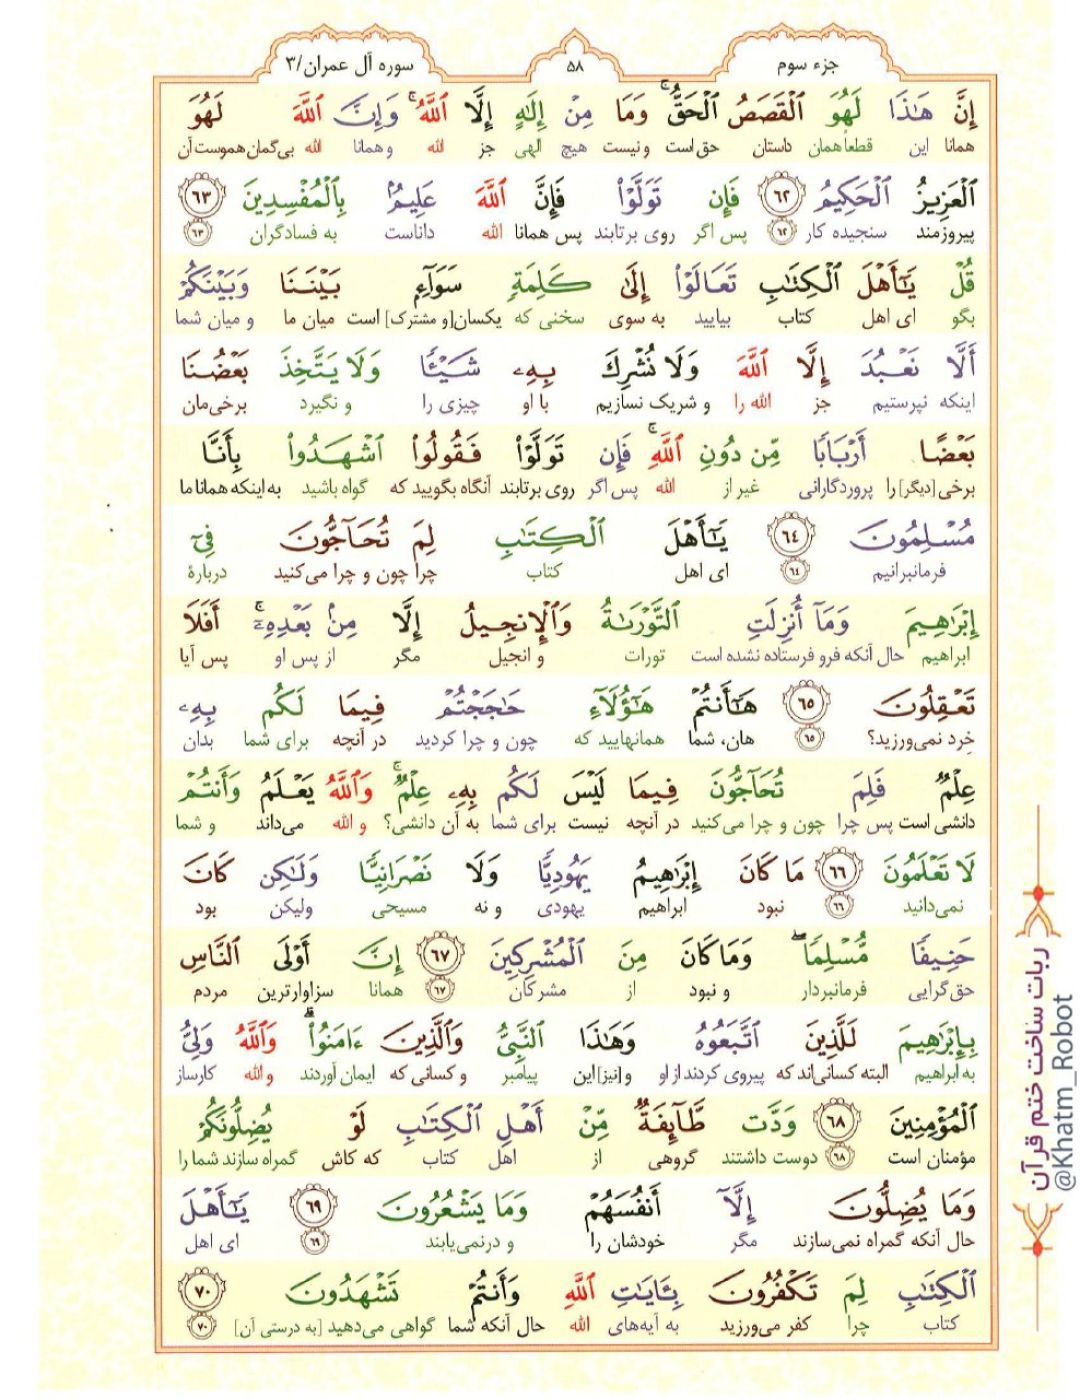 جزء سوم
۵۸
سوره آل عمران/۳
إِنَّ هَـٰذَا لَهُوَ ٱلۡقَصَصُ ٱلۡحَقُّۚ وَمَا مِنۡ إِلَـٰهٍ إِلَّا ٱللَّهُۚ وَإِنَّ ٱللَّهَ لَهُوَ
همانا این قطعاً همان داستان حق است و نیست هیچ الهی جز الله و همانا الله بی‌گمان هموست آن
ٱلۡعَزِیزُ ٱلۡحَكِیمُ ٦٢ فَإِن تَوَلَّوۡاْ فَإِنَّ ٱللَّهَ عَلِیمُۢ بِٱلۡمُفۡسِدِینَ ٦٣
پیروزمند سنجیده کار ٦٢ پس اگر روی برتابند پس همانا الله داناست به فسادگران ٦٣
قُلۡ یَـٰٓأَهۡلَ ٱلۡكِتَـٰبِ تَعَالَوۡاْ إِلَىٰ كَلِمَةٍ سَوَآءِۭ بَیۡنَنَا وَبَیۡنَكُمۡ
بگو ای اهل کتاب بیایید به سوی سخنی که یکسان[و مشترک] است میان ما و میان شما
أَلَّا نَعۡبُدَ إِلَّا ٱللَّهَ وَلَا نُشۡرِكَ بِهِۦ شَیۡـًٔا وَلَا یَتَّخِذَ بَعۡضُنَا
اینکه نپرستیم جز الله را و شریک نسازیم با او چیزی را و نگیرد برخی‌مان
بَعۡضًا أَرۡبَابًا مِّن دُونِ ٱللَّهِۚ فَإِن تَوَلَّوۡاْ فَقُولُواْ ٱشۡهَدُواْ بِأَنَّا
برخی[دیگر] را پروردگارانی غیر از الله پس اگر روی برتابند آنگاه بگویید که گواه باشید به اینکه همانا ما
مُسۡلِمُونَ ٦٤ یَـٰٓأَهۡلَ ٱلۡكِتَـٰبِ لِمَ تُحَآجُّونَ فِیٓ
فرمانبرانیم ٦٤ ای اهل کتاب چرا چون و چرا می‌کنید دربارهٔ
إِبۡرَٰهِیمَ وَمَآ أُنزِلَتِ ٱلتَّوۡرَىٰةُ وَٱلۡإِنجِیلُ إِلَّا مِنۢ بَعۡدِهِۦٓۚ أَفَلَا
ابراهیم حال آنکه فرو فرستاده نشده است تورات و انجیل مگر از پس او پس آیا
تَعۡقِلُونَ ٦٥ هَـٰٓأَنتُمۡ هَـٰٓؤُلَآءِ حَـٰجَجۡتُمۡ فِیمَا لَكُم بِهِۦ
خِرد نمی‌ورزید؟ ٦٥ هان، شما همانهایید که چون و چرا کردید در آنچه برای شما بدان
عِلۡمٌ فَلِمَ تُحَآجُّونَ فِیمَا لَیۡسَ لَكُم بِهِۦ عِلۡمٌۚ وَٱللَّهُ یَعۡلَمُ وَأَنتُمۡ
دانشی است پس چرا چون و چرا می‌کنید در آنچه نیست برای شما به آن دانشی؟ و الله می‌داند و شما
لَا تَعۡلَمُونَ ٦٦ مَا كَانَ إِبۡرَٰهِیمُ یَهُودِیًّا وَلَا نَصۡرَانِیًّا وَلَـٰكِن كَانَ
نمی‌دانید ٦٦ نبود ابراهیم یهودی و نه مسیحی ولیکن بود
حَنِیفًا مُّسۡلِمًاۖ وَمَا كَانَ مِنَ ٱلۡمُشۡرِكِینَ ٦٧ إِنَّ أَوۡلَى ٱلنَّاسِ
حق‌گرایی فرمانبردار و نبود از مشرکان ٦٧ همانا سزاوارترین مردم
بِإِبۡرَٰهِیمَ لَلَّذِینَ ٱتَّبَعُوهُ وَهَـٰذَا ٱلنَّبِیُّ وَٱلَّذِینَ ءَامَنُواْۗ وَٱللَّهُ وَلِیُّ
به ابراهیم البته کسانی‌اند که پیروی کردند از او و[نیز] این پیامبر و کسانی که ایمان آوردند و الله کارساز
ٱلۡمُؤۡمِنِینَ ٦٨ وَدَّت طَّآئِفَةٌ مِّنۡ أَهۡلِ ٱلۡكِتَـٰبِ لَوۡ یُضِلُّونَكُمۡ
مؤمنان است ٦٨ دوست داشتند گروهی از اهل کتاب که کاش گمراه سازند شما را
وَمَا یُضِلُّونَ إِلَّآ أَنفُسَهُمۡ وَمَا یَشۡعُرُونَ ٦٩ یَـٰٓأَهۡلَ
حال آنکه گمراه نمی‌سازند مگر خودشان را و درنمی‌یابند ٦٩ ای اهل
ٱلۡكِتَـٰبِ لِمَ تَكۡفُرُونَ بِـَٔایَـٰتِ ٱللَّهِ وَأَنتُمۡ تَشۡهَدُونَ ٧٠
کتاب چرا کفر می‌ورزید به آیه‌های الله حال آنکه شما گواهی می‌دهید [به درستی آن] ٧٠
ربات ساخت ختم قرآن
@Khatm_Robot